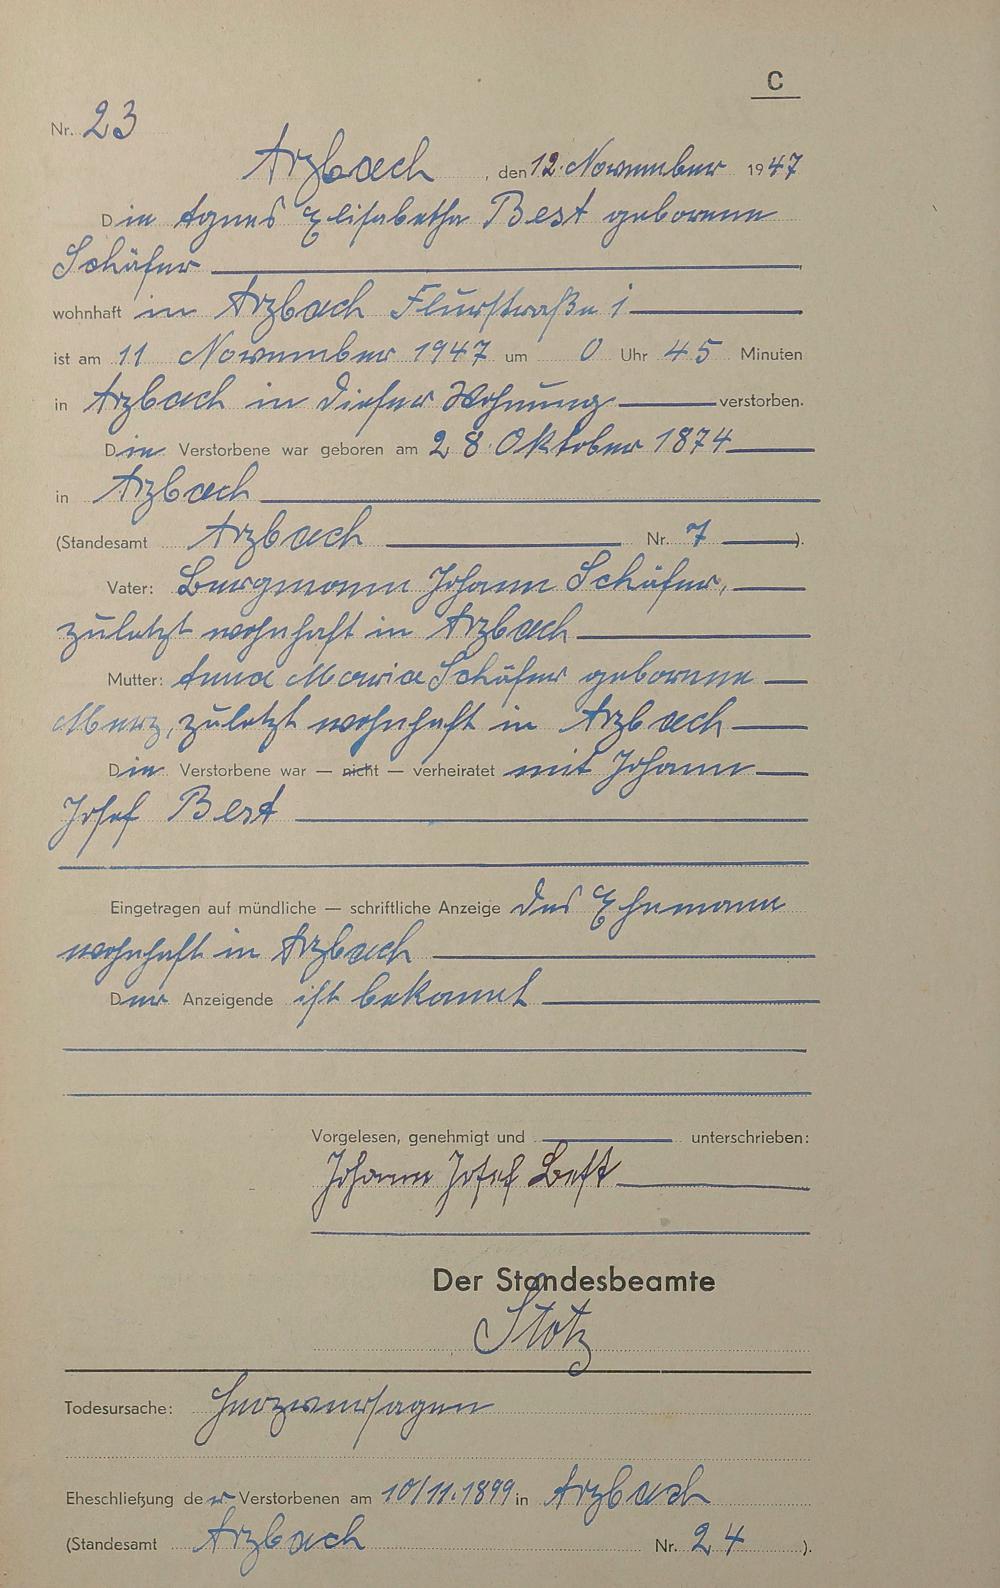 C
Nr. 23
Arzbach, den 12. November 1947
Die Agnes Elisabetha Best geborene
Schäfer
wohnhaft in Arzbach Flurstraße 1
ist am 11 November 1947 um 0 Uhr 45 Minuten
in Arzbach in dieser Wohnung verstorben.
Die Verstorbene war geboren am 28. Oktober 1874
in Arzbach
(Standesamt Arzbach Nr. 7 ).
Vater: Bergmann Johann Schäfer,
zuletzt wohnhaft in Arzbach
Mutter: Anna Maria Schäfer geborene
Merz, zuletzt wohnhaft in Arzbach
Die Verstorbene war — nicht — verheiratet mit Johann
Josef Best
Eingetragen auf mündliche — schriftliche Anzeige des Ehemann
wohnhaft in Arzbach
Der Anzeigende ist bekannt
Vorgelesen, genehmigt und unterschrieben:
Johann Josef Best
Der Standesbeamte
Stotz
Todesursache: Herzversagen
Eheschließung der Verstorbenen am 10/11.1899 in Arzbach
(Standesamt Arzbach Nr. 24 ).